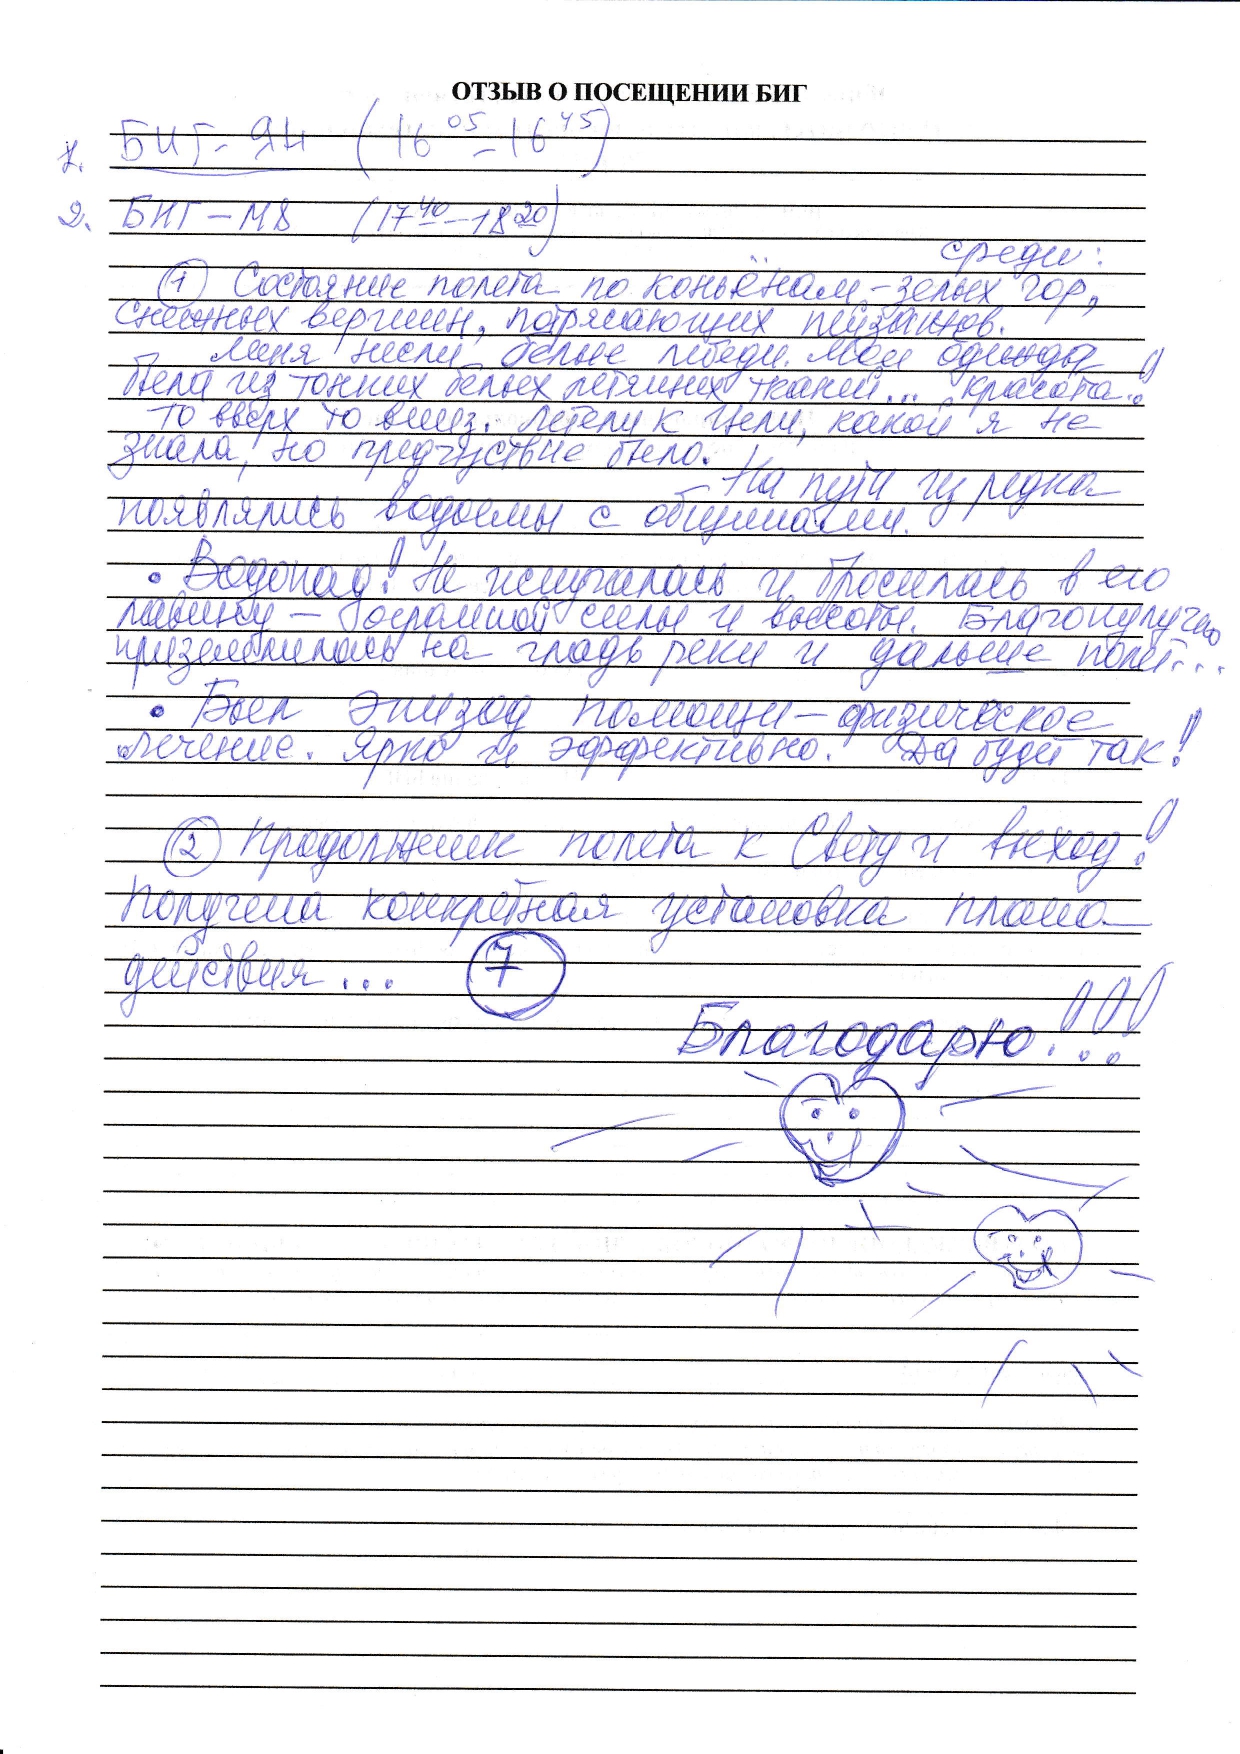 ОТЗЫВ О ПОСЕЩЕНИИ БИГ
1. БИГ- ЯН (16 05 - 16 45)
2. БИГ - М8 (17 40 - 18 20)
среди:
1 Состояние полета по коньёнам - зелых гор,
снежных вершин, потрясающих пейзажов.
Меня несли белые лебеди. Моя одежда
была из тонких белых летящих тканей... красота!
то вверх то вниз. Летели к цели, какой я не
знала, но предчуствие было.
На пути изредка
появлялись водоемы с общинами.
• Водопад! Не испугалась и бросилась в его
лавину - огромной силы и высоты. Благополучно
приземлилась на гладь реки и дальше полет...
• Был эпизод помощи - физическое
лечение. Ярко и эффективно. Да будет так!
2 Продолжение полета к Свету и выход!
Получена конкретная установка плана
действия... 7
Благодарю!!!